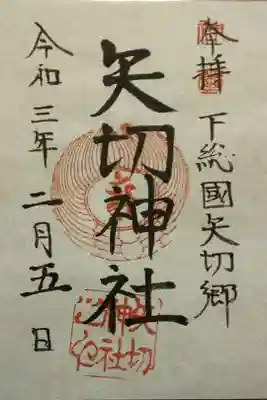 奉拝
下総國矢切郷
矢切神社
令和三年二月五日
矢切
神社